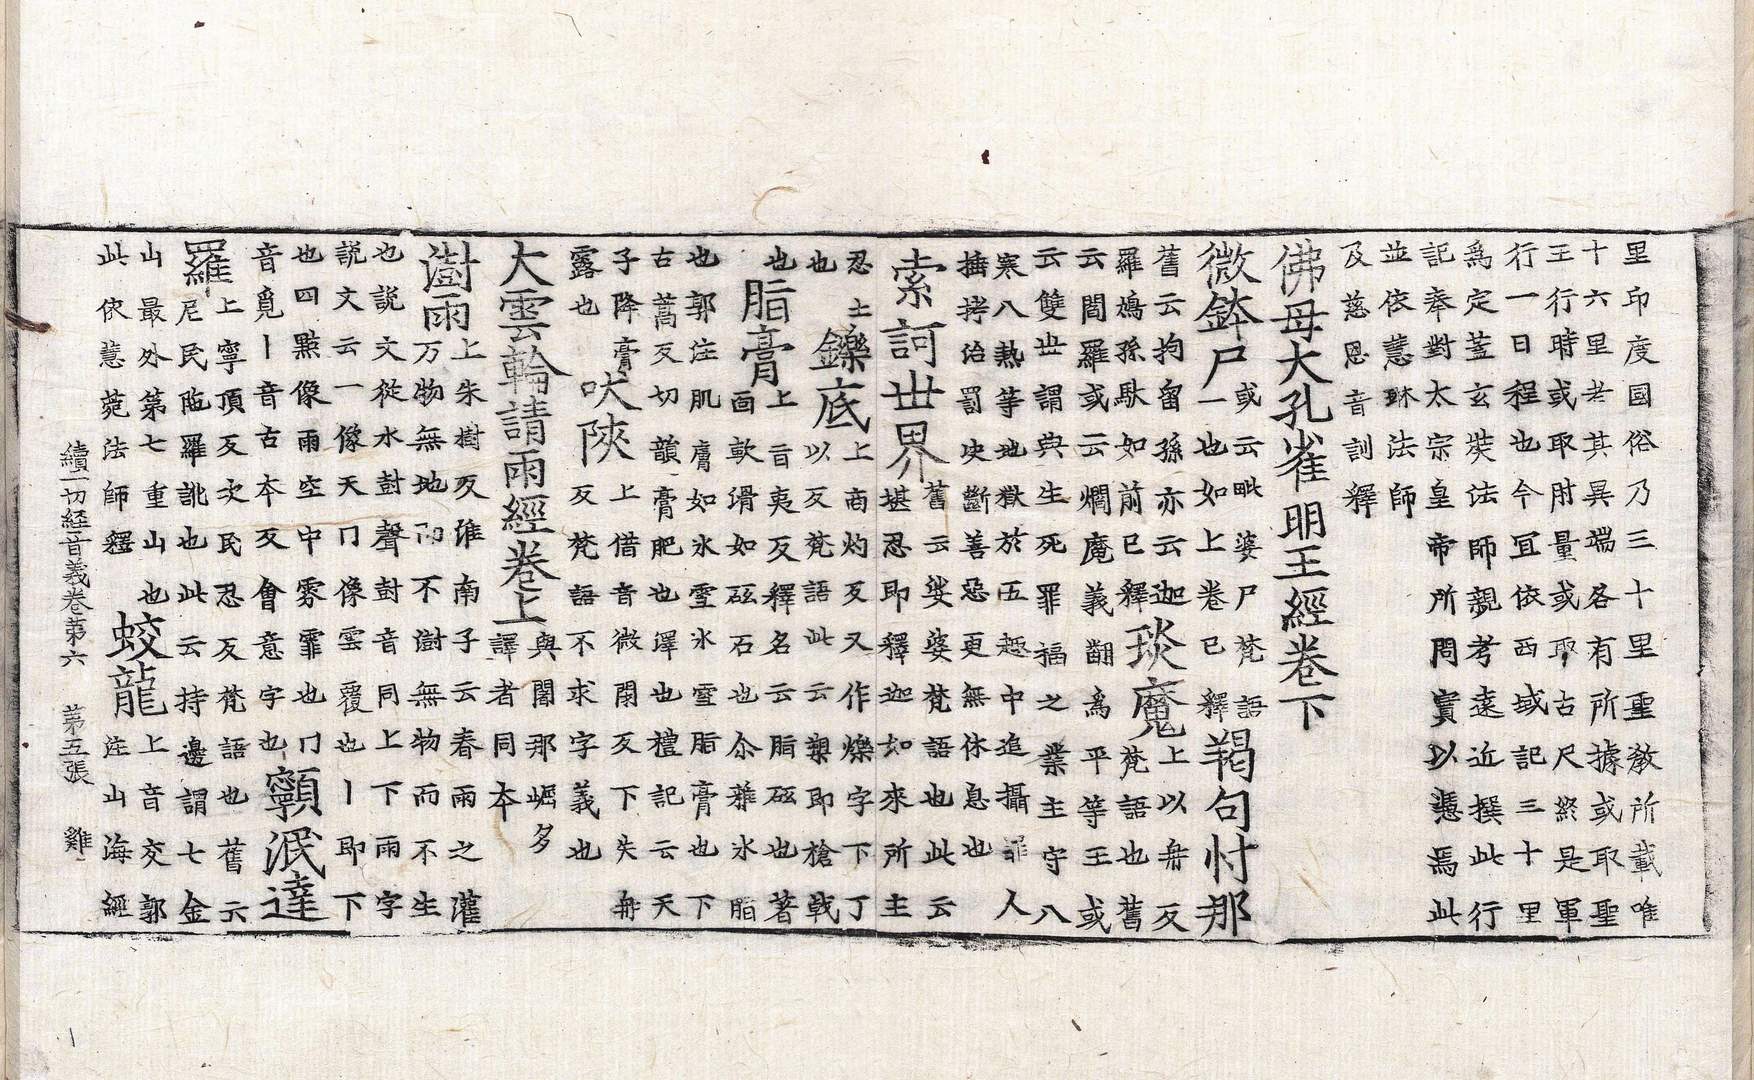 里印度國俗乃三十里聖教所載唯
十六里考其異端各有所據或取聖
王行時或取肘量或取古尺終是軍
行一日程也今冝依西域記三十里
爲定葢玄奘法師親考遠近撰此行
記奉對太宗皇帝所問實以憑焉此
並依慧琳法師
及慈恩音訓釋
佛母大孔雀明王經卷下
微鉢尸 或云毗婆尸梵語一也如上卷已釋 羯句忖那
舊云拘留孫亦云迦羅鳩孫馱如前已釋 琰魔 上以冉反梵語也舊
云閻羅或云爓魔義翻爲平等王或
云雙世謂與生死罪福之業主守八
寒八熱等地獄於五趣中追攝罪人
捶拷治罰决斷善惡更無休息也
索訶世界 舊云娑婆梵語也此云堪忍即釋迦如來所主
忍土也 鑠底 上商灼反又作爍字下丁以反梵語此云槊即槍戟
也 脂膏 上旨夷反釋名云脂砥也著面軟滑如砥石也尒雅氷脂
也郭注肌膚如氷雪氷雪脂膏也下
古蒿反切韻膏肥也澤也禮記云天
子降膏露也 吠陝 上借音微閉反下失冉反梵語不求字義也
大雲輪請雨經卷上 與闍那崛多譯者同本
澍雨 上朱樹反淮南子云春雨之灌万物無地而不澍無物而不生
也說文從水封聲封音同上下雨字
說文云一像天冂像雲覆也丨即下
也四點像雨空中雰霏也冂
音覓丨音古本反會意字也 𩕳泯達
羅 上寧頂反次民忍反梵語也舊云尼民陁羅訛也此云持邊謂七金
山最外第七重山也此依慧菀法師釋 蛟龍 上音交郭注山海經
續一切経音義卷第六 第五張 雞